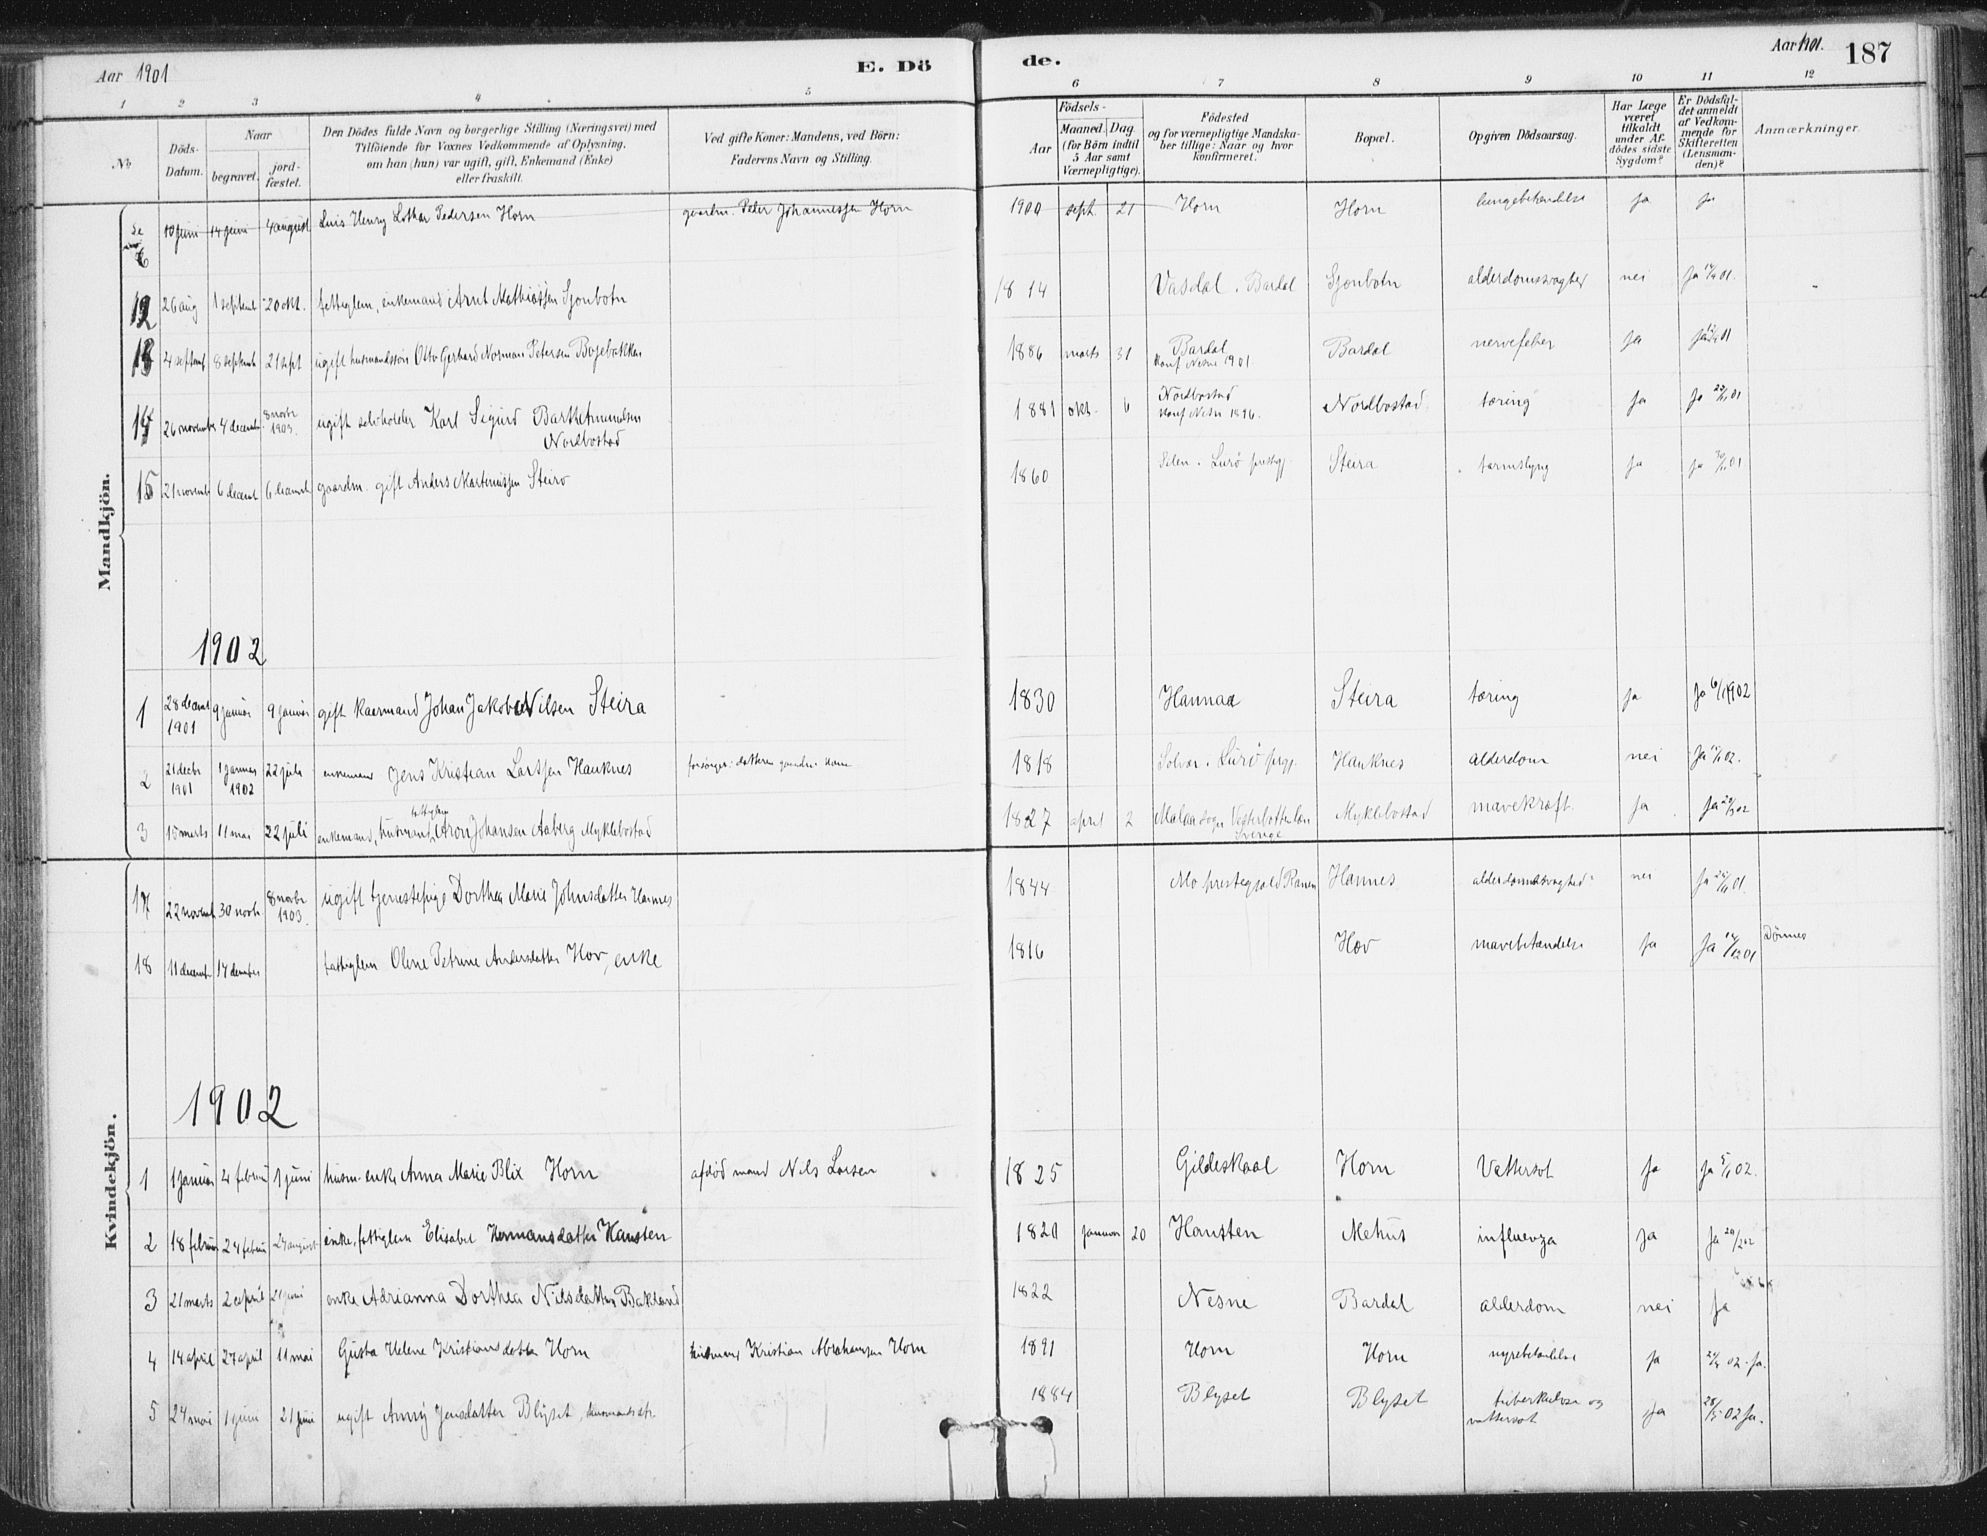 Aar 1901
E. Dö
de.
Aar 1901.
187
1 2 3 4 5 6 7 8 9 10 11 12
No
Döds-Datum.
Naar
begravet.
jord-fæstet.
Den Dödes fulde Navn og borgerlige Stilling (Næringsvei) med
Tilföiende for Voxnes Vedkommende af Oplysning,
om han (hun) var ugift, gift, Enkemand (Enke)
eller fraskilt.
Ved gifte Koner: Mandens, ved Börn:
Faderens Navn og Stilling.
Födsels-
Aar
Maaned. Dag
(for Börn indtil
5 Aar samt
Værnepligtige).
Födested
og for værnepligtige Mandska-
ber tillige: Naar og hvor
konfirmeret.
Bopæl.
Opgiven Dödsaarsag.
Har Læge
været
tilkaldt
under Af-
dödes sidste
Sygdom?
Er Dödsfal-
det anmeldt
af Vedkom-
mende for
Skifteretten
(Lensman-
den)?
Anmærkninger.
Mandkjön.
Se 6 10 juni 14 juni 4 august Luis Henry Lothar Pedersen Horn gaardm. Peter Johannessen Horn 1900 sept. 21 Horn Horn lungebetændelse ja ja
12 26 aug 1 septemb 20 okt. fattiglem, enkemand Arnt Mathiassen Sjonbotn 1814 Vasdal, Bardal Sjonbotn alderdomssvaghed nei ja
13 4 septemb 8 septemb 21 sept ugift husmandssøn Otto Gerhard Norman Petersen Bogebakken 1886 marts 31 Bardal Bardal nervefeber ja
konf Nesne 1901
14 26 november 4 decemb 8 novbr 1903. ugift selvholder Karl Sigurd Barth Amundsen 1881 okt. 6 Nordbostad Nordbostad. tæring ja ja
Nordbostad konf Nesn 1896.
15 21 novemb 6 decemb 6 decemb gaardm. gift Anders Martinussen Steiro 1860 Selen. Lurø prestgj Steira tarmslyng ja ja
1902
1 28 decemb 1901 9 januar 9 januar gift kaarmand Johan Jakob Nilsen Steira 1830 Hannaa Steira tæring ja ja 6/1 1902
2 21 decbr 1901 1 januar 1902 22 juli enkemand Jens Kristian Larssen Hauknes forsørger: datteren 1818 Solvær. Lurø prgj. Hauknes alderdom nei
3 15 marts 11 mai 22 juli enkemand, husmand, fattiglem Aron Johansen Aaberg Myklebostad 1827 april 2 Malaa sogn Vesterbotten län Myklebostad mavekræft. ja
Sverige
Kvindekjön.
17 22 novemb 30 novbr 8 novbr 1903. ugift tjenestepige Dorthea Marie Johnsdatter Hannes 1844 Mo prestegjæld Ranen Hannes alderdomssvaghed nei
18 11 decemb 17 december fattiglem Oline Petrine Andersdatter Hov, enke 1816 Hov mavebetændelse ja Dønnes
1902
1 1 januar 4 februar 1 juni husm. enke Anna Marie Blix Horn afdød mand Nils Larsen 1825 Gildeskaal Horn Vattersot ja
2 18 februar 24 februar 24 august enke, fattiglem Elisabet Hermansdatter Hansten 1820 januar 20 Hansten Mehus influenza ja
3 21 marts 2 april 21 juni enke Adrianna Dorthea Nilsdatter Bakland 1822 Nesne Bardal alderdom nei ja
4 14 april 27 april 11 mai Gusta Helene Kristiansdatter Horn husmand Kristian Abrahamsen Horn 1891 Horn Horn nyrebetændelse ja
5 24 mai 1 juni 21 juni ugift Anny Jensdatter Blyset, husmandsdtr. 1884 Blyset Blyset tuberkulose og ja 28/5 02 ja.
vattersot